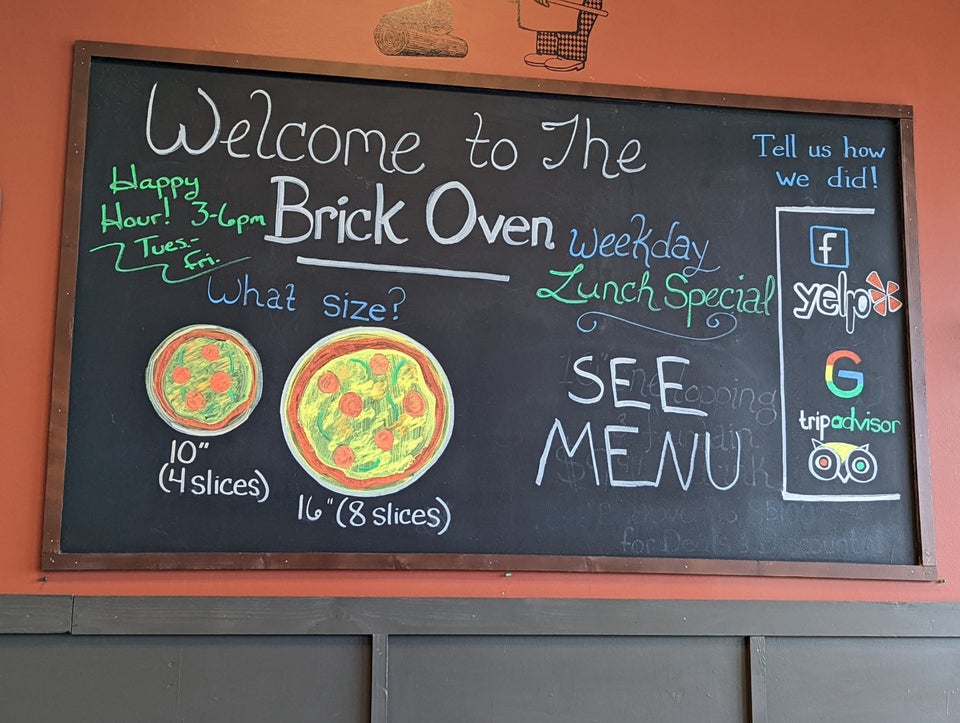 Welcome to The
Brick Oven
Happy
Hour! 3-6pm
Tues.-
Fri.
What size?
10"
(4 slices)
16" (8 slices)
Weekday
Lunch Special
SEE
MENU
topping
for Deals
Tell us how
we did!
f
yelp
G
tripadvisor